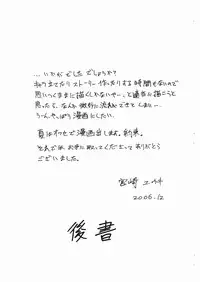 …いかがでしたでしょうか?
ネタ立てたりストーリー作ったりする時間もないので
思いつくままに描くしかないやー。と適当に描こうと
思ったら、なんか微妙に流れができてしまい…
うーんやっぱり漫画にしたい。
夏はオフセで漫画出します。約束。
それではお手に取ってくださってありがとう
ございました。
宮崎
2006.12
後書